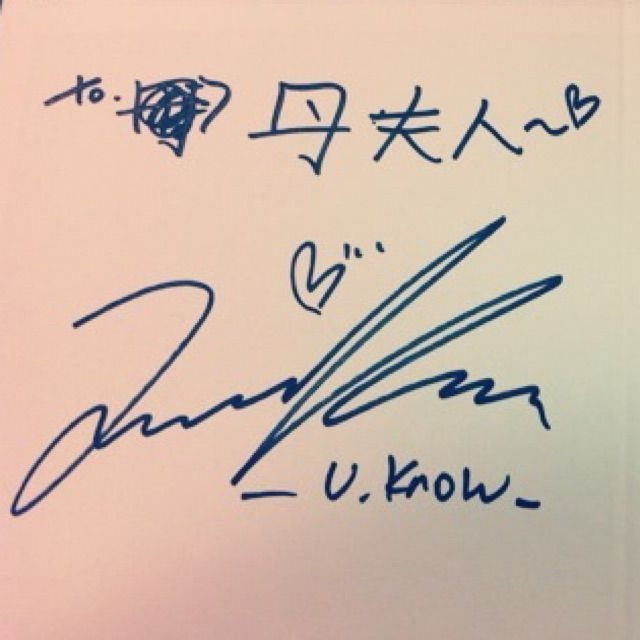 to. 母夫人~♡
♡...
- U.Know -